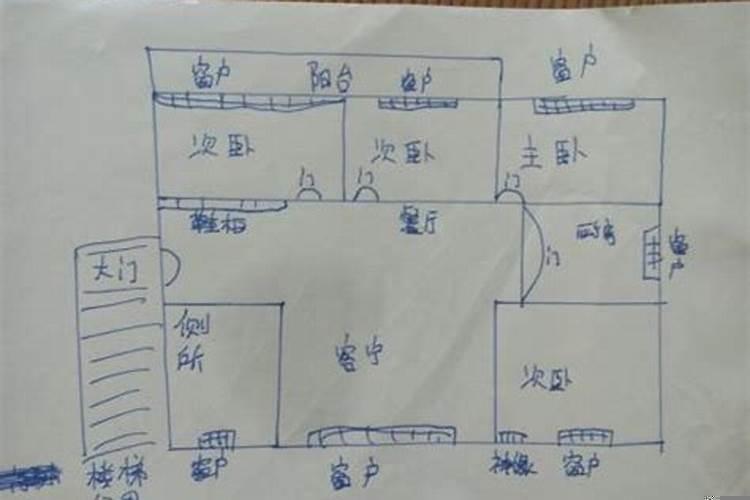 窗户
阳台
窗户
窗户
次卧
次卧
主卧
门
门
门
鞋柜
餐厅
厨房
窗户
大门
门
侧所
客宁
次卧
窗户
窗户
窗户
楼梯